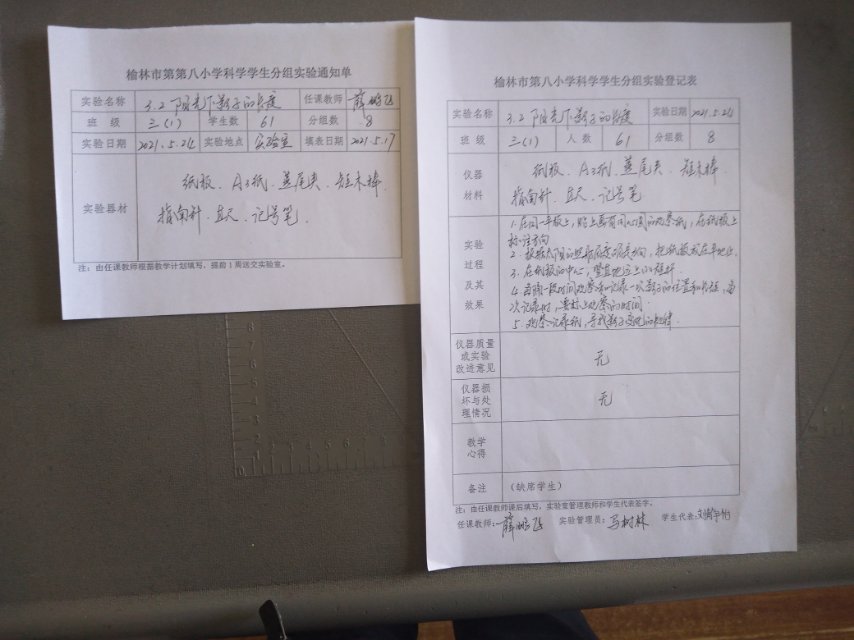 榆林市第八小学科学学生分组实验通知单
实验名称 3.2 阳光下影子的长度 任课教师 薛鹏飞
班 级 三(1) 学生数 61 分组数 8
实验日期 2021.5.24 实验地点 实验室 填表日期 2021.5.17
实验器材 纸板、A3纸、燕尾夹、短木棒
指南针、直尺、记号笔.
注：由任课教师根据教学计划填写，提前1周送交实验室。
榆林市第八小学科学学生分组实验登记表
实验名称 3.2 阳光下影子的长度 实验日期 2021.5.24
班 级 三(1) 人 数 61 分组数 8
仪器材料 纸板、A3纸、燕尾夹、短木棒
指南针、直尺、记号笔
实验过程及其效果
1.在同一纸板上,贴上画有同心圆的观察纸,在纸板上
标注方向
3.在纸板的中心,竖直地立上小短杆
4.每隔一段时间观察和记录一次影子的位置和长短,每
次记录时,要标上观察的时间
5.观察记录纸,寻找影子变化的规律.
仪器质量或实验改进意见 无
仪器损坏与处理情况 无
教学心得
备注 (缺席学生)
注：由任课教师课后填写，实验室管理教师和学生代表签字。
任课教师: 薛鹏飞 实验管理员: 马树林 学生代表: